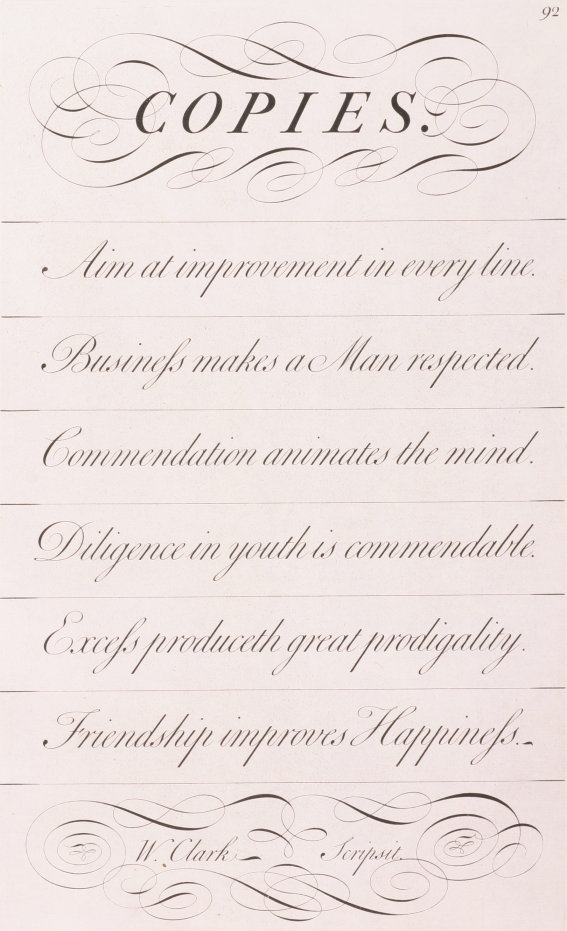 92
COPIES.
Aim at improvement in every line.
Busineſs makes a Man respected.
Commendation animates the mind.
Diligence in youth is commendable.
Exceſs produceth great prodigality.
Friendship improves Happineſs.
W. Clark Scripsit.